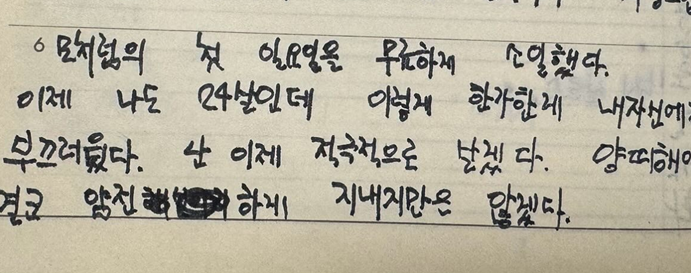 6 모처럼의 첫 일요일을 무료하게 소일했다.
이제 나도 24살인데 이렇게 한가한게 내자신에게
부끄러웠다. 난 이제 적극적으로 살겠다.
결코 얌전 하게 지내지만은 않겠다.